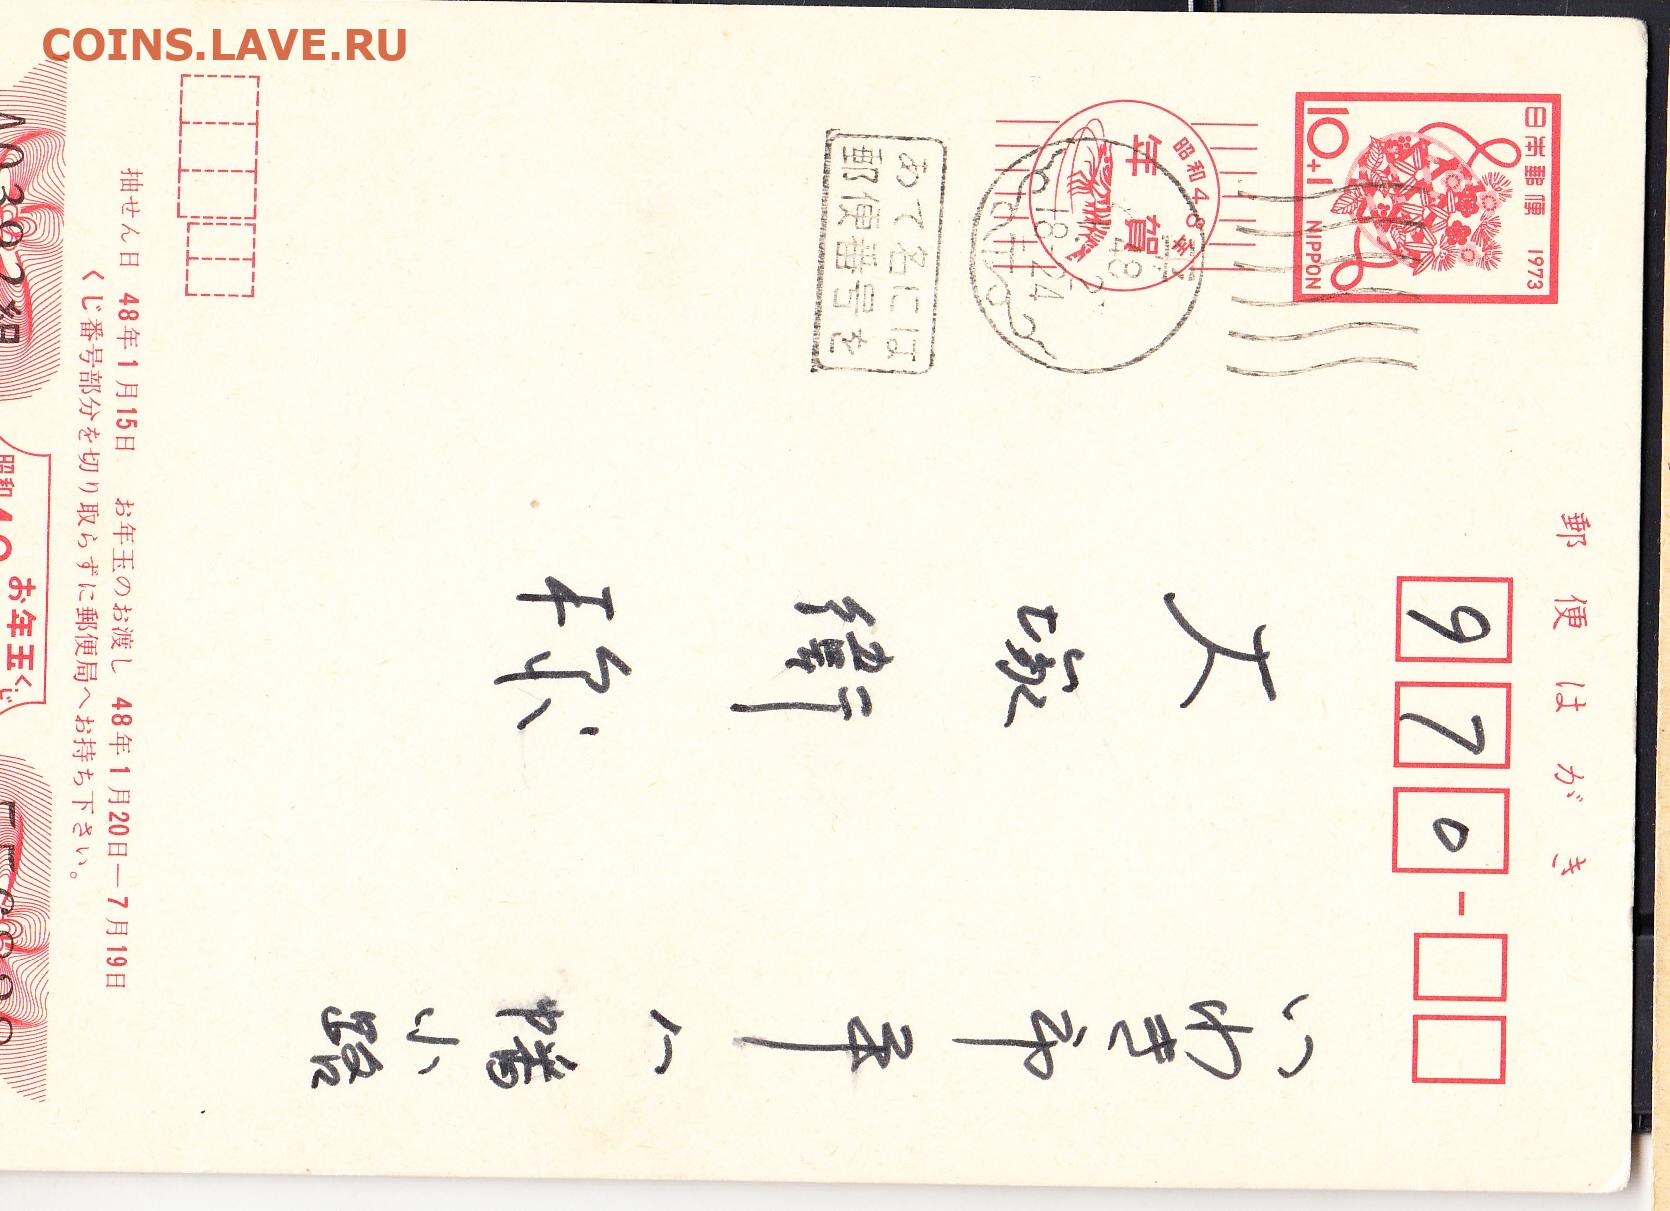 COINS.LAVE.RU
郵便はがき
日本郵便 1973
10+1 NIPPON
昭和48年
年賀
48
18-24
あて名には
郵便番号を
970
いわき市平
八幡小路
大
衛
様
抽せん日 48年1月15日 お年玉のお渡し 48年1月20日—7月19日
くじ番号部分を切り取らずに郵便局へお持ち下さい。
お年玉くじ